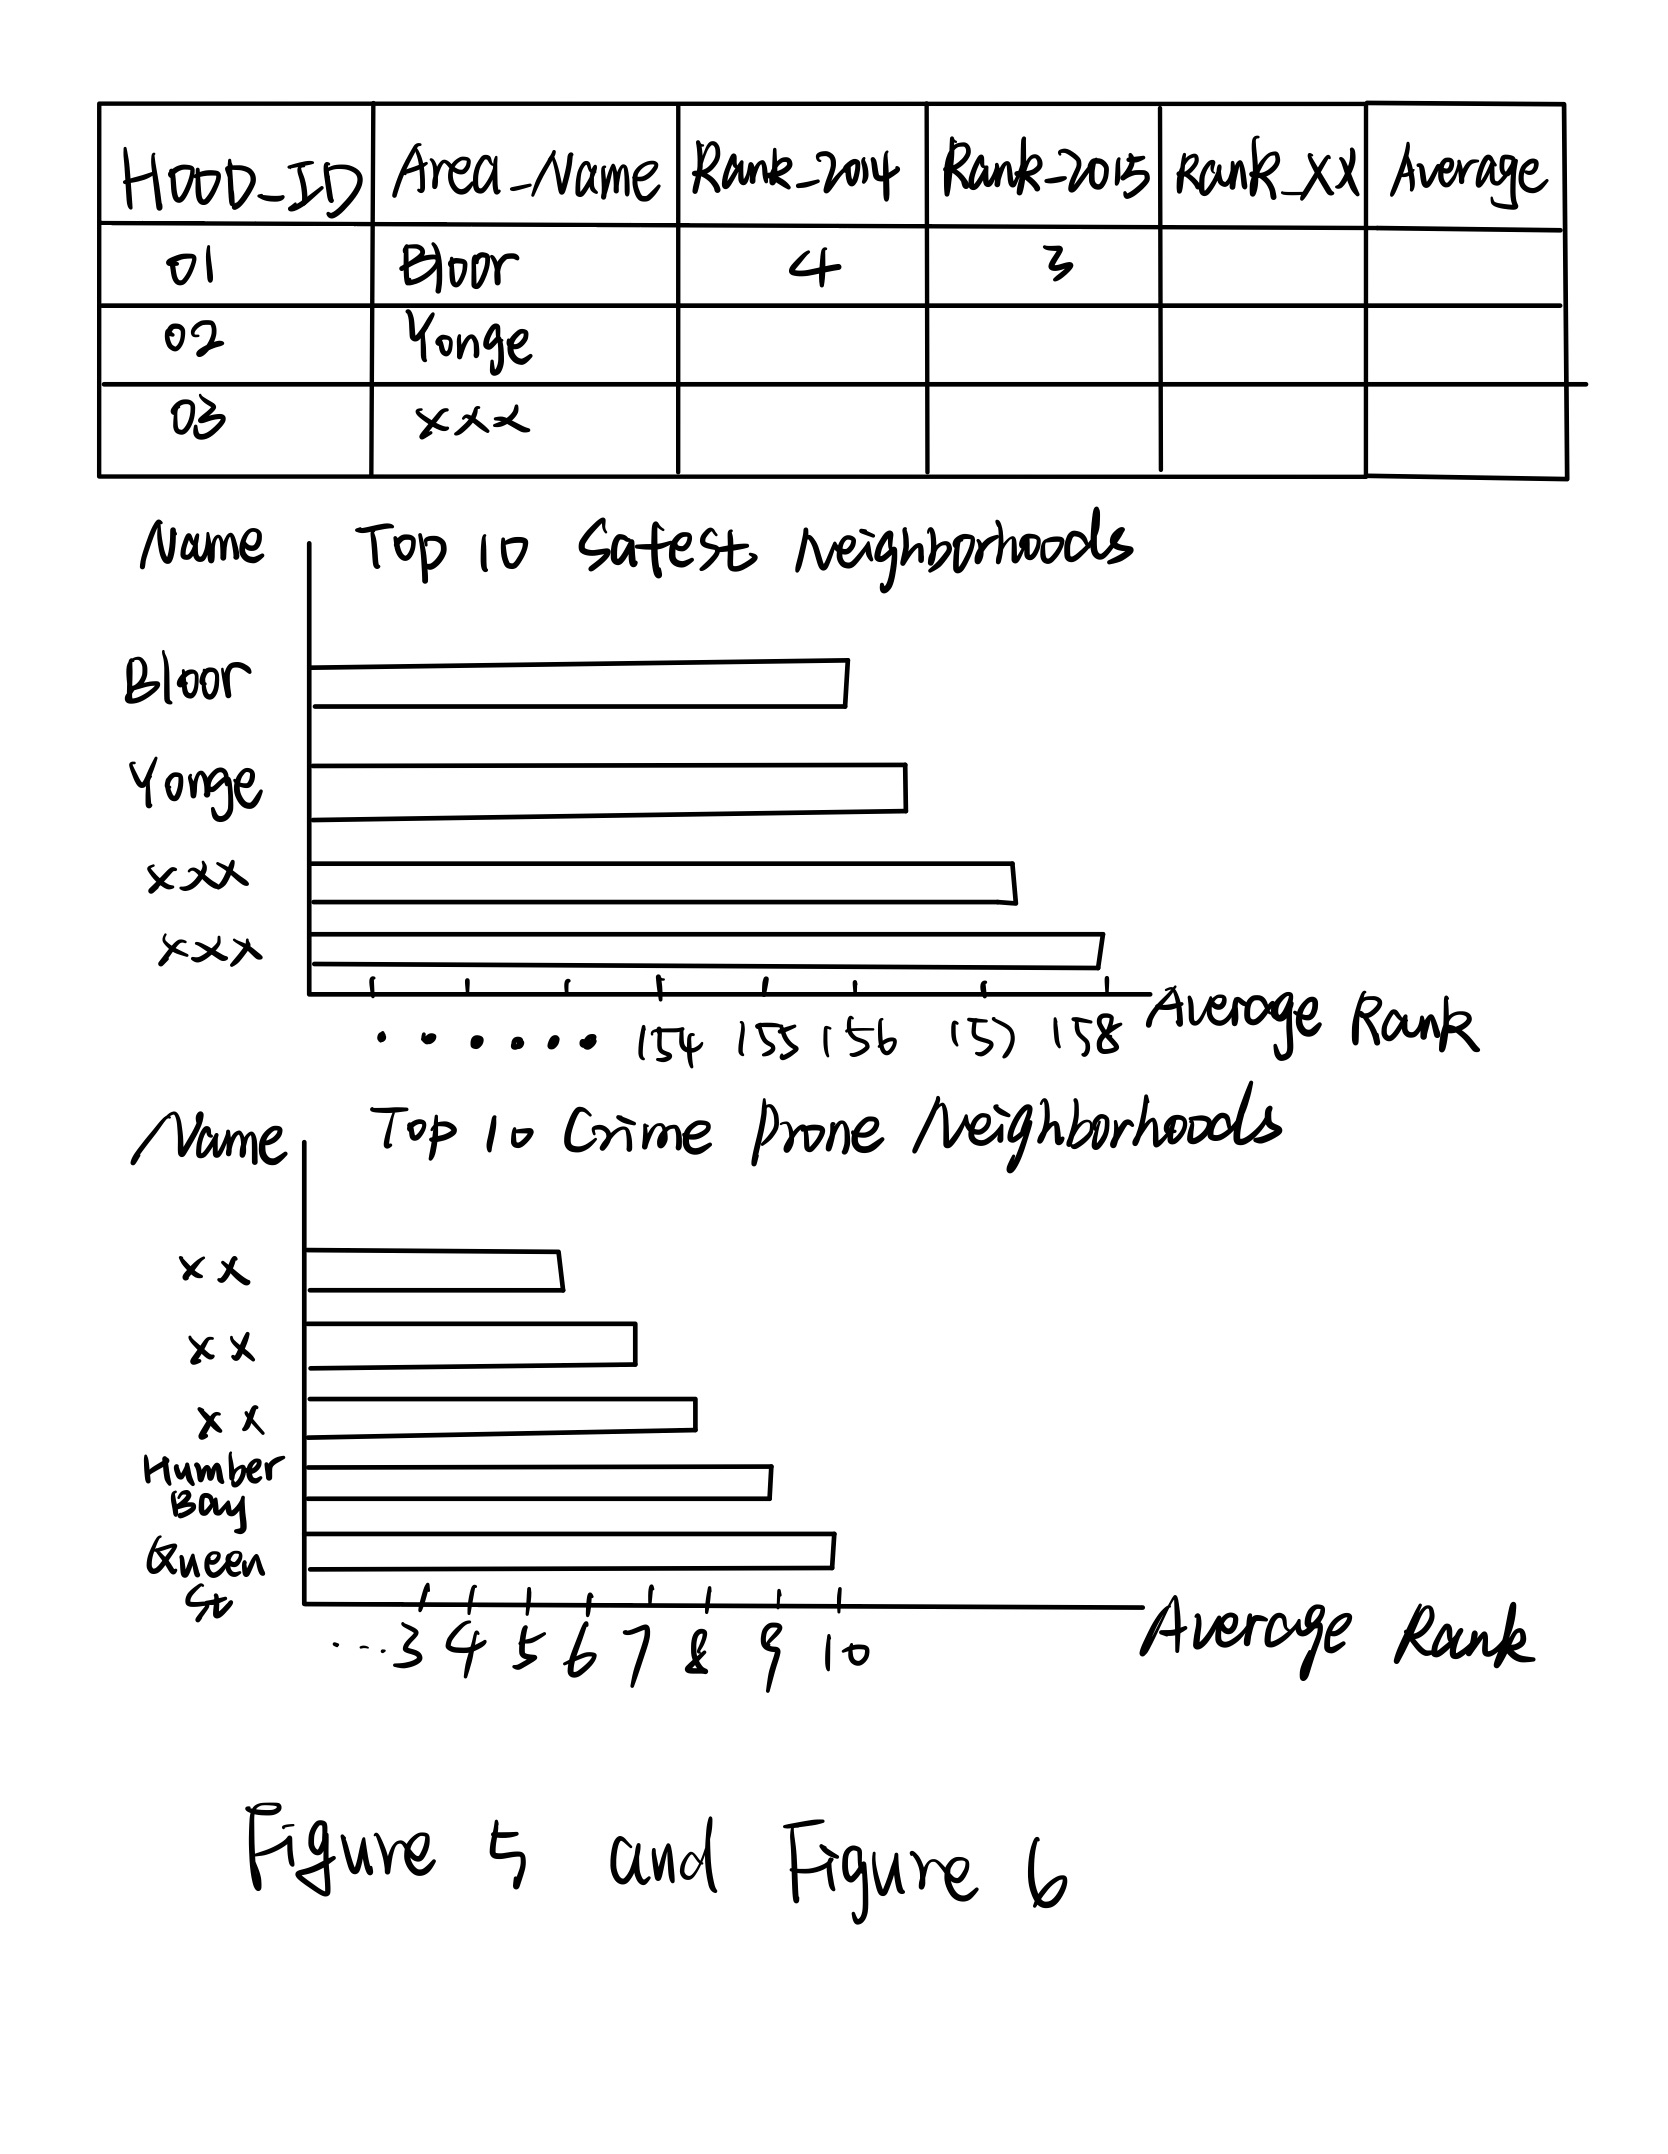 HOOD_ID Area_Name Rank_2014 Rank_2015 Rank_XX Average
01 Bloor 4 3
02 Yonge
03 xxx
Name Top 10 Safest Neighborhoods
Bloor
Yonge
xxx
xxx
...... 154 155 156 157 158 Average Rank
Name Top 10 Crime Prone Neighborhoods
xx
xx
xx
Humber
Bay
Queen
St
... 3 4 5 6 7 8 9 10 Average Rank
Figure 5 and Figure 6